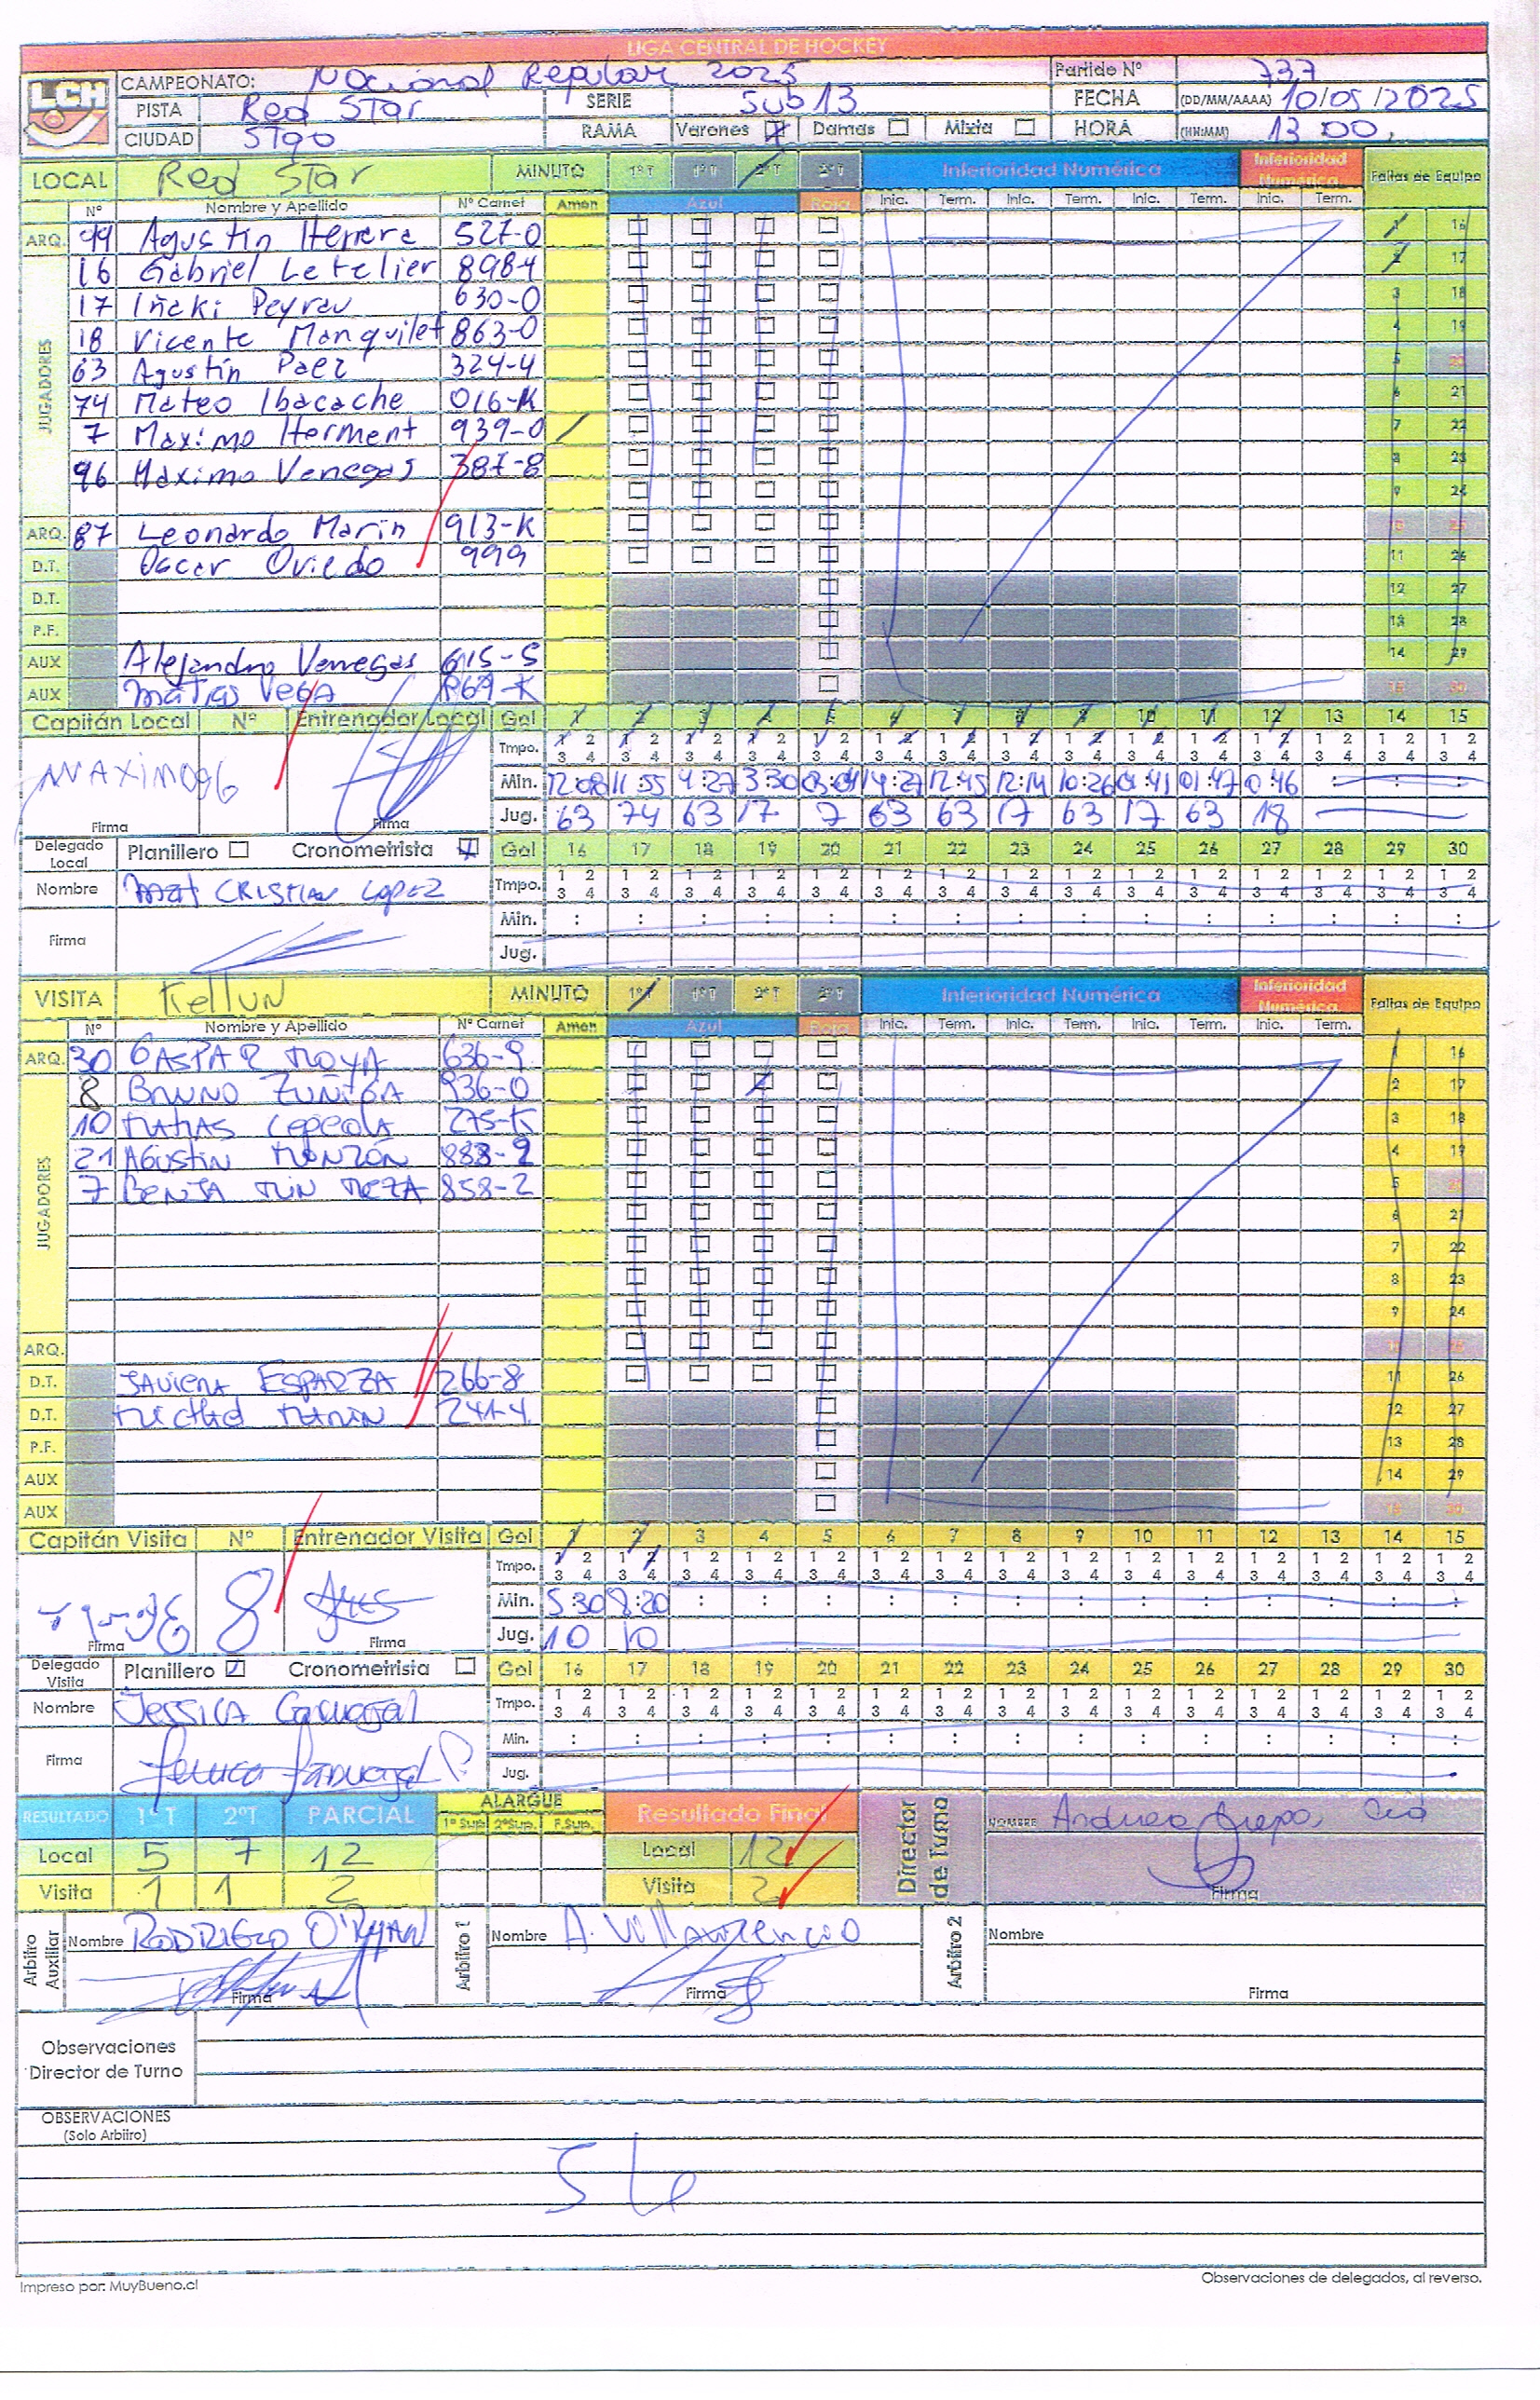 LIGA CENTRAL DE HOCKEY
LCH
CAMPEONATO: Nacional Regular 2025 Partido Nº 737
PISTA Red Star SERIE Sub 13 FECHA (DD/MM/AAAA) 10/05/2025
CIUDAD STgo RAMA Varones Damas Mixta HORA (HH:MM) 13 00
LOCAL Red Star MINUTO 1º T 1º T 2º T 2º T Inferioridad Numérica Inferioridad Numérica Faltas de Equipo
Nº Nombre y Apellido Nº Carnet Amon Azul Roja Inic. Term. Inic. Term. Inic. Term. Inic. Term.
ARQ. 99 Agustin Herrera 527-0 1 16
JUGADORES
16 Gabriel Letelier 898-4 2 17
17 Iñaki Peyrau 630-0 3 18
18 Vicente Manquilef 863-0 4 19
63 Agustín Paez 324-4 5 20
74 Mateo Ibacache 016-K 6 21
7 Maximo Herment 939-0 7 22
96 Maximo Venegas 387-8 8 23
9 24
ARQ. 87 Leonardo Marin 913-K 10 25
D.T. Oscar Oviedo 999 11 26
D.T. 12 27
P.F. 13 28
AUX Alejandro Venegas 615-5 14 29
AUX Matias Vega 869-K 15 30
Capitán Local Nº Entrenador Local Gol 1 2 3 4 5 6 7 8 9 10 11 12 13 14 15
Tmpo. 1 2 1 2 1 2 1 2 1 2 1 2 1 2 1 2 1 2 1 2 1 2 1 2 1 2 1 2 1 2
3 4 3 4 3 4 3 4 3 4 3 4 3 4 3 4 3 4 3 4 3 4 3 4 3 4 3 4 3 4
MAXIMO 96 Min. 12:08 11:55 4:27 3:30 03:04 14:27 12:45 12:14 10:26 01:41 01:47 0:46 : : :
Firma Firma Jug. 63 74 63 17 7 63 63 17 63 17 63 18
Delegado Local Planillero Cronometrista Gol 16 17 18 19 20 21 22 23 24 25 26 27 28 29 30
Nombre CRISTIAN LOPEZ Tmpo. 1 2 1 2 1 2 1 2 1 2 1 2 1 2 1 2 1 2 1 2 1 2 1 2 1 2 1 2 1 2
3 4 3 4 3 4 3 4 3 4 3 4 3 4 3 4 3 4 3 4 3 4 3 4 3 4 3 4 3 4
Firma Min. : : : : : : : : : : : : : : :
Jug.
VISITA Kellun MINUTO 1º T 1º T 2º T 2º T Inferioridad Numérica Inferioridad Numérica Faltas de Equipo
Nº Nombre y Apellido Nº Carnet Amon Azul Roja Inic. Term. Inic. Term. Inic. Term. Inic. Term.
ARQ. 30 GASPAR MOYA 636-9 1 16
JUGADORES
8 BRUNO ZUNIGA 936-0 2 17
10 MATIAS Cepeda 275-K 3 18
21 AGUSTIN MONZÓN 888-2 4 19
7 BENJAMIN MEZA 858-2 5 20
6 21
7 22
8 23
9 24
ARQ. 10 25
D.T. JAVIERA ESPARZA 266-8 11 26
D.T. MICHAEL MARIN 241-4 12 27
P.F. 13 28
AUX 14 29
AUX 15 30
Capitán Visita Nº Entrenador Visita Gol 1 2 3 4 5 6 7 8 9 10 11 12 13 14 15
Tmpo. 1 2 1 2 1 2 1 2 1 2 1 2 1 2 1 2 1 2 1 2 1 2 1 2 1 2 1 2 1 2
3 4 3 4 3 4 3 4 3 4 3 4 3 4 3 4 3 4 3 4 3 4 3 4 3 4 3 4 3 4
8 Min. 5:30 8:20 : : : : : : : : : : : : :
Firma Firma Jug. 10 10
Delegado Visita Planillero Cronometrista Gol 16 17 18 19 20 21 22 23 24 25 26 27 28 29 30
Nombre Jessica Carvajal Tmpo. 1 2 1 2 1 2 1 2 1 2 1 2 1 2 1 2 1 2 1 2 1 2 1 2 1 2 1 2 1 2
3 4 3 4 3 4 3 4 3 4 3 4 3 4 3 4 3 4 3 4 3 4 3 4 3 4 3 4 3 4
Firma Jessica Carvajal Min. : : : : : : : : : : : : : : :
Jug.
RESULTADO 1º T 2ºT PARCIAL ALARGUE 1º Sup. 2ºSup. F.Sup. Resultado Final Director de Turno NOMBRE Andrea
Local 5 7 12 Local 12
Visita 1 1 2 Visita 2 Firma
Arbitro Auxiliar Nombre RODRIGO O'RYAN Arbitro 1 Nombre A. Villavicencio Arbitro 2 Nombre
Firma Firma Firma
Observaciones
Director de Turno
OBSERVACIONES
(Solo Arbitro)
Impreso por: MuyBueno.cl Observaciones de delegados, al reverso.